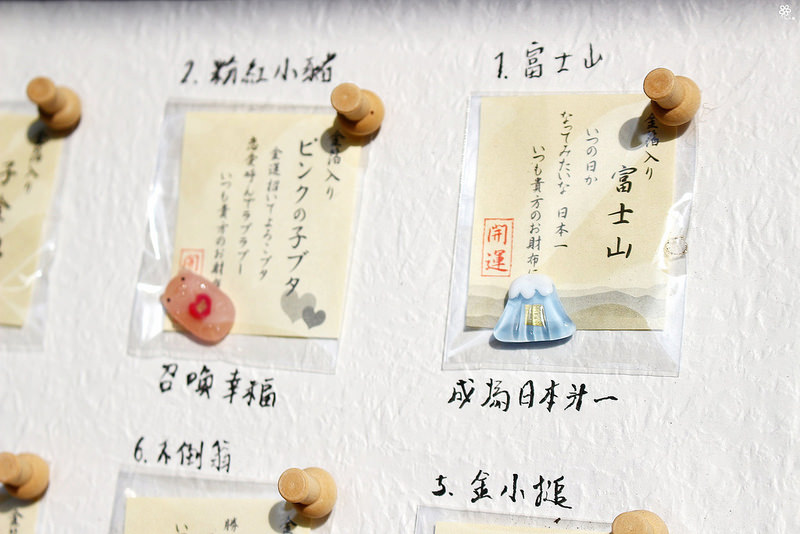 1. 富士山
金箔入り
富士山
いつの日か
なってみたいな 日本一
いつも貴方のお財布に
開運
成為日本第一
2. 粉紅小豬
金箔入り
ピンクの子ブタ
金運招いてよろこブタ
恋愛呼んでラブラブー
いつも貴方のお財布
召喚幸福
5. 金小槌
6. 不倒翁